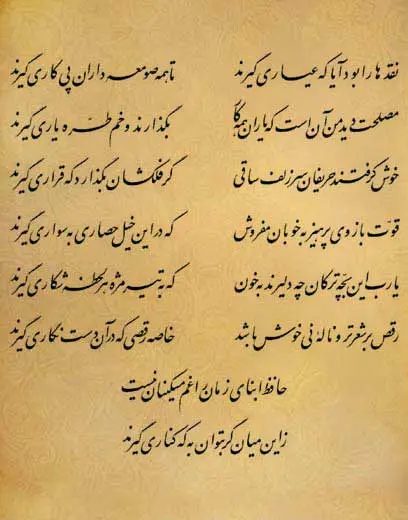 نقدها را بود آیا که عیاری گیرند تا همه صومعه داران پی کاری گیرند
مصلحت دید من آن است که یاران همه کار بگذارند و خم طره یاری گیرند
خوش گرفتند حریفان سر زلف ساقی گر فلکشان بگذارد که قراری گیرند
قوت بازوی پرهیز به خوبان مفروش که در این خیل حصاری به سواری گیرند
یارب این بچه ترکان چه دلیرند به خون که به تیر مژه هر لحظه شکاری گیرند
رقص بر شعر تر و ناله نی خوش باشد خاصه رقصی که در آن دست نگاری گیرند
حافظ ابنای زمان را غم مسکینان نیست
زاین میان گر بتوان به که کناری گیرند